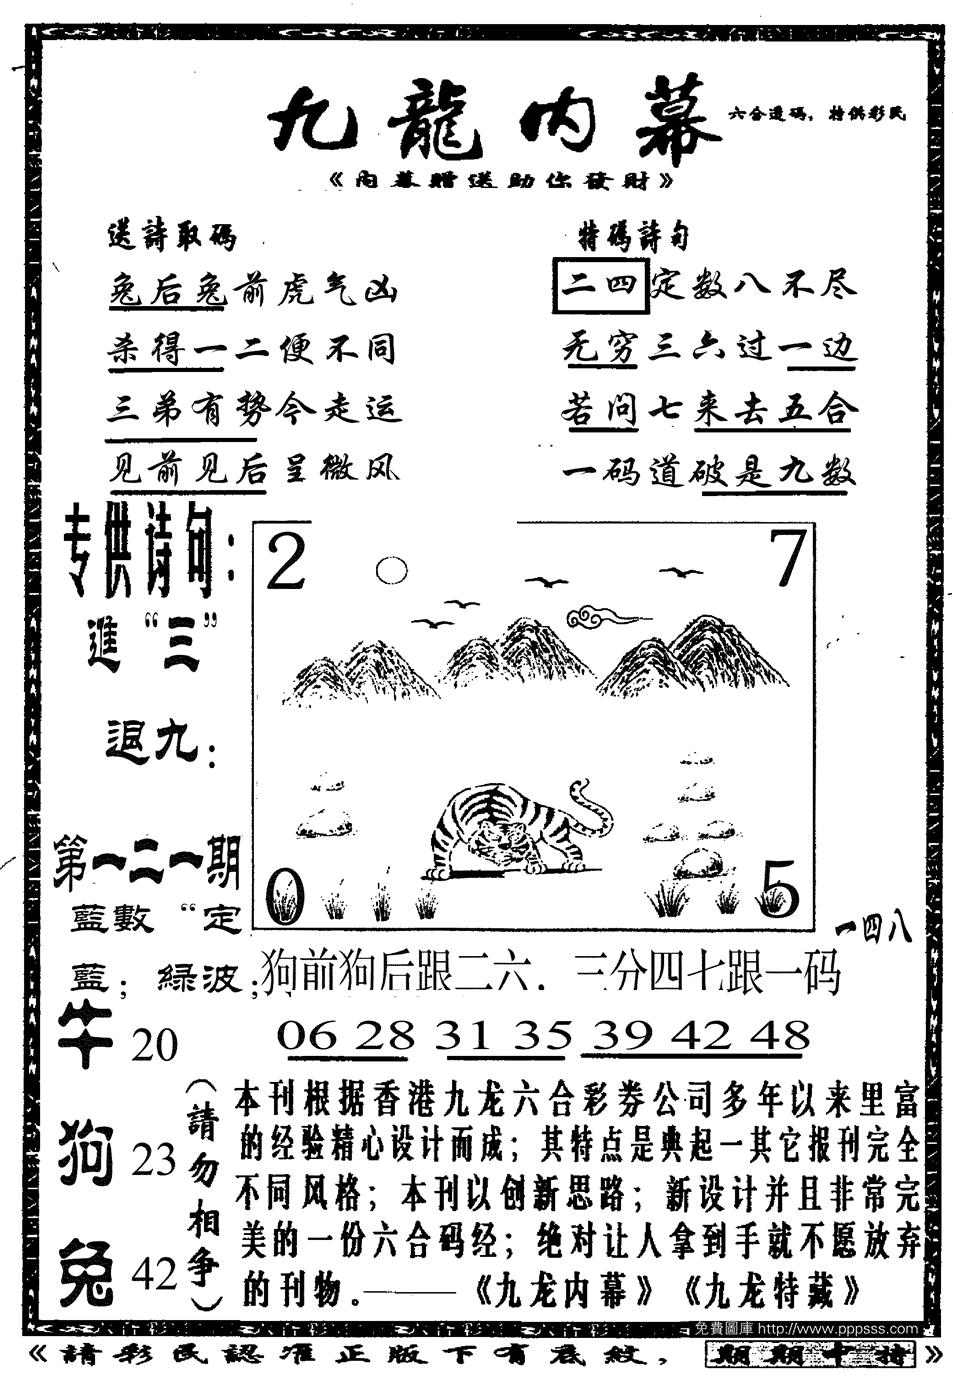 九龍内幕
六合透码，特供彩民
《内幕贈送助你發財》
送詩取碼
兔后兔前虎气凶
杀得一二便不同
三弟有势今走运
见前见后呈微风
特碼詩句
二四定数八不尽
无穷三六过一边
若问七来去五合
一码道破是九数
专供诗句：
進“三”
退九：
第一二一期
藍數“定
藍；綠波；
2
7
0
5
一四八
狗前狗后跟二六，三分四七跟一码
06 28 31 35 39 42 48
牛 20
狗 23
兔 42
（請勿相争）
本刊根据香港九龙六合彩券公司多年以来里富
的经验精心设计而成；其特点是典起一其它报刊完全
不同风格；本刊以创新思路；新设计并且非常完
美的一份六合码经；绝对让人拿到手就不愿放弃
的刊物。———《九龙内幕》《九龙特藏》
免費圖庫 http://www.pppsss.com
《請彩民認准正版下有底紋，期期十特》